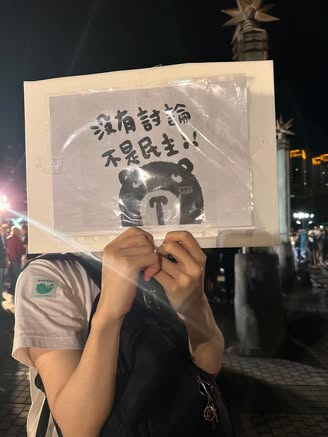 沒有討論
不是民主!!